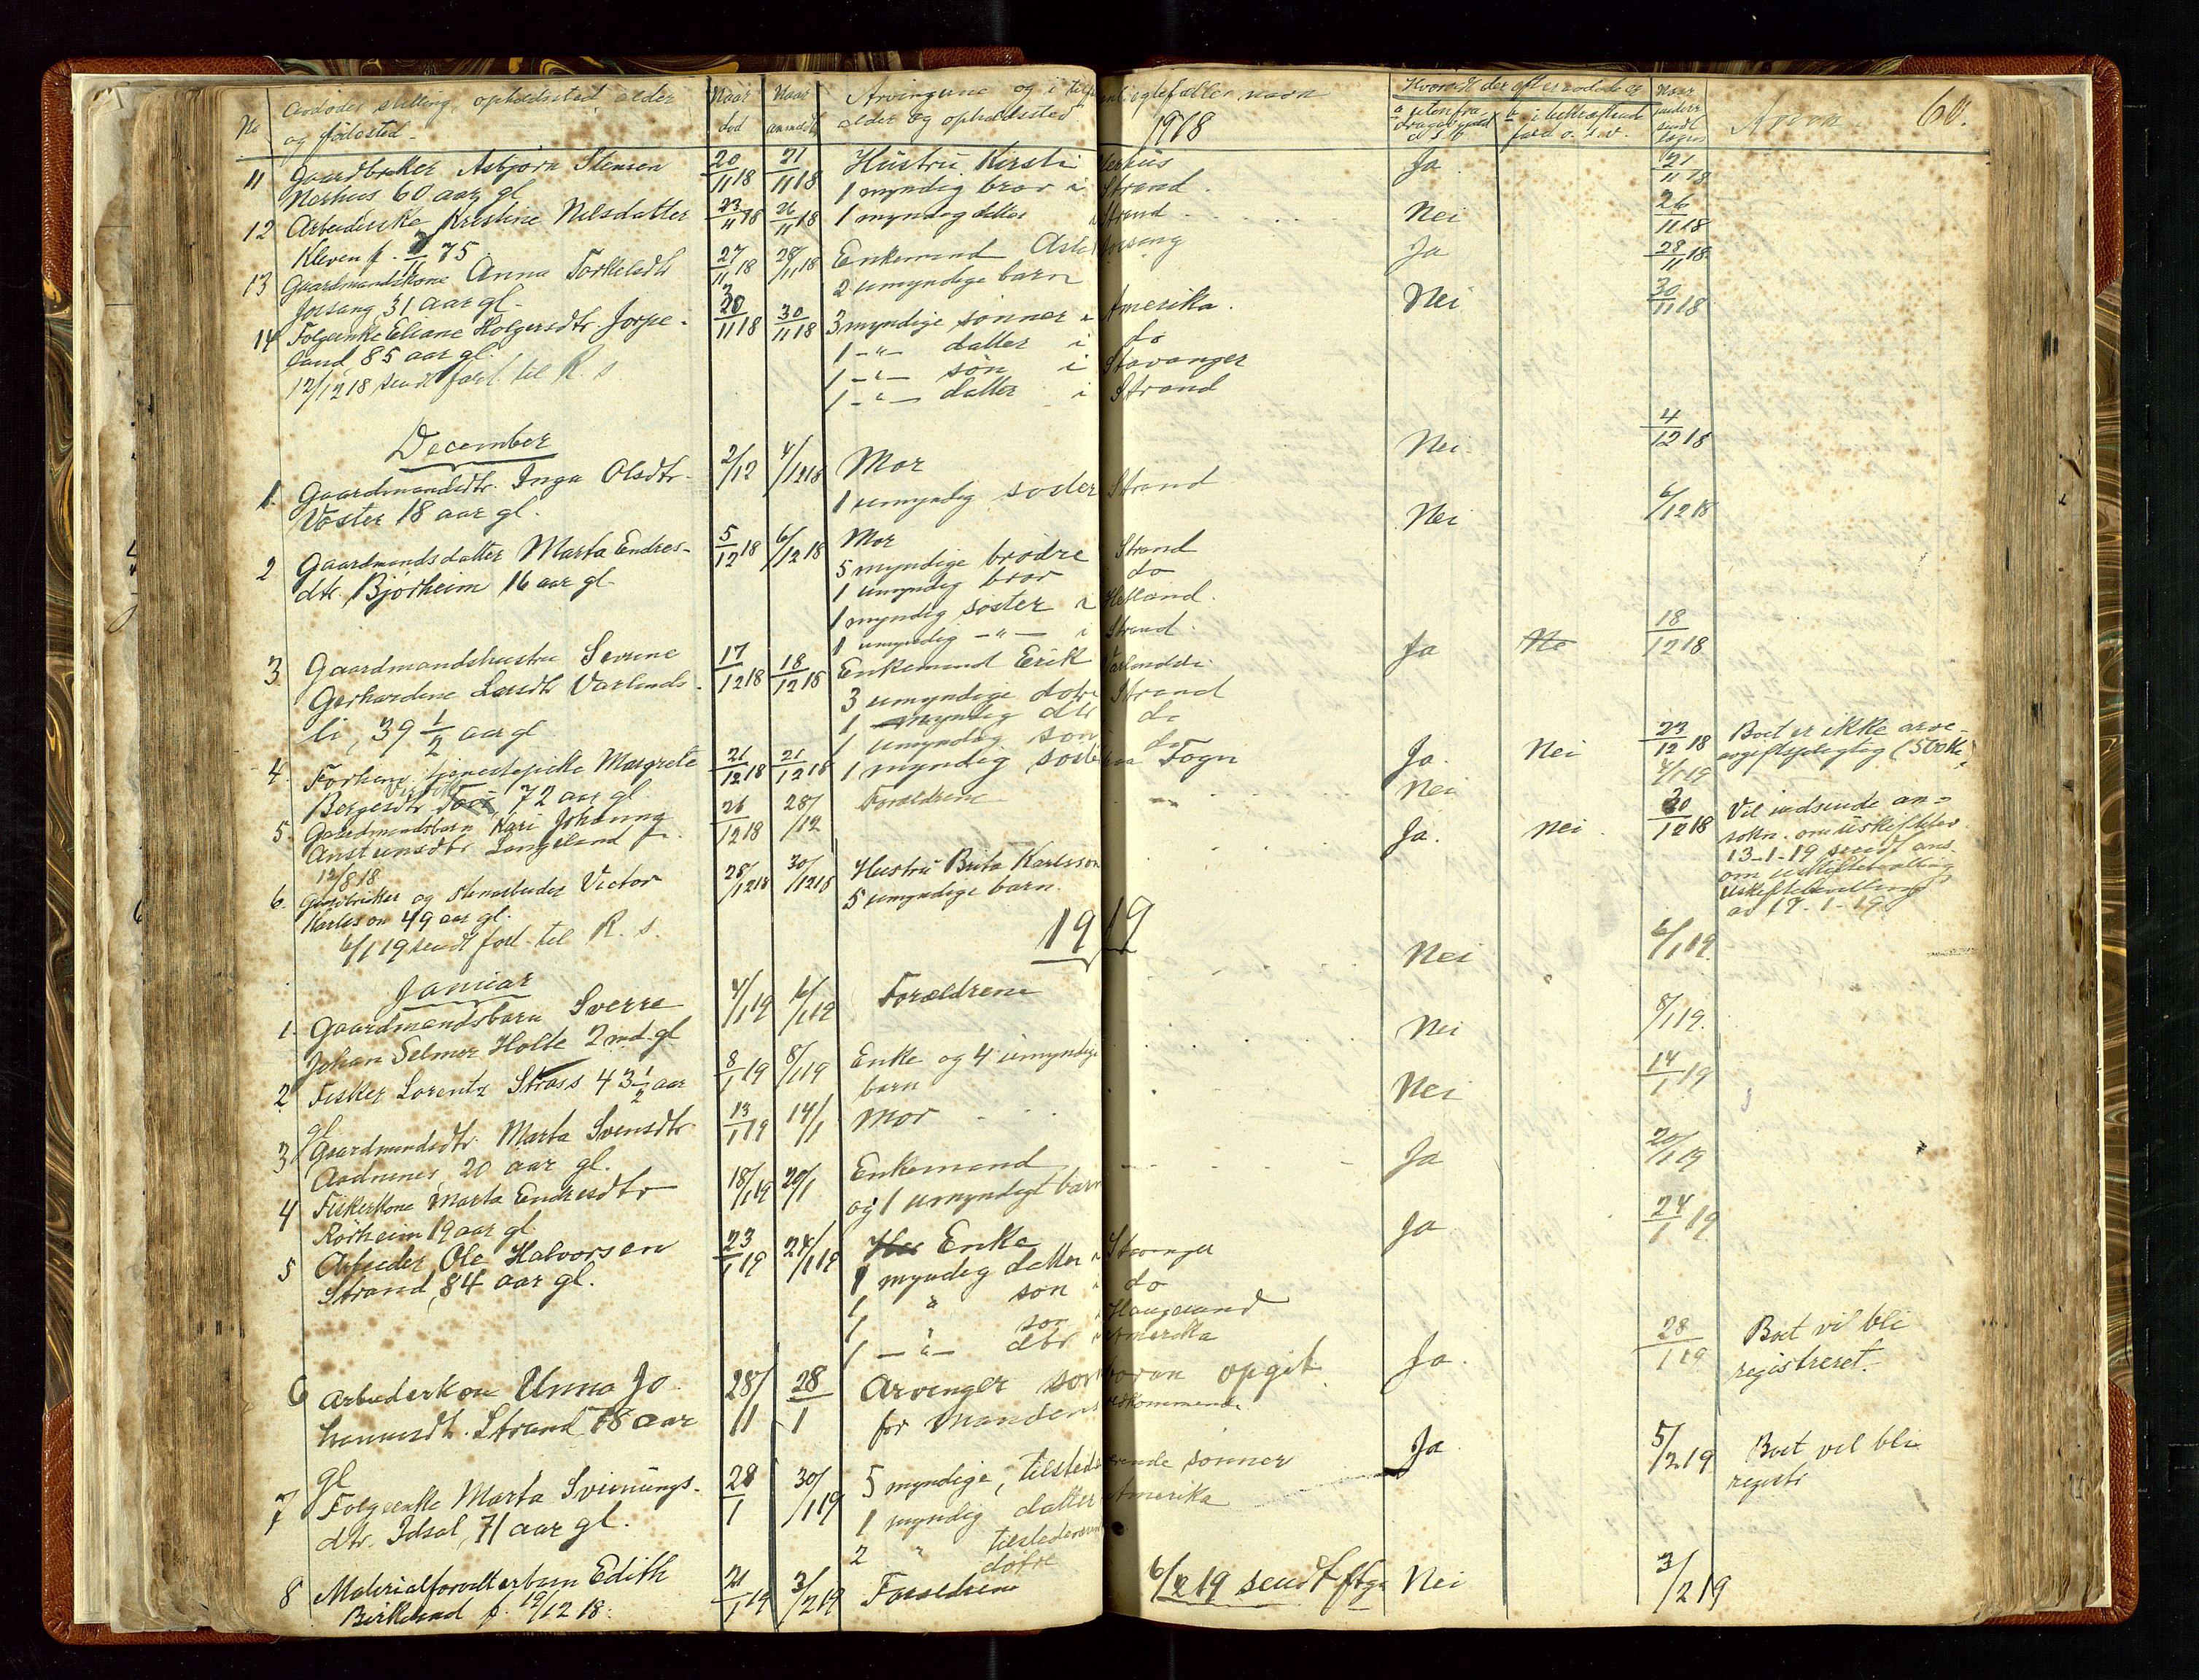 60.
No Avdødes stilling, opholdssted, alder og fødested. Naar død Naar anmeldt Arvingerne og i
alder og opholdssted 1918
11 Gaardbruker Asbjørn Stensen 20/11 18 21/11 18 Hustru Kirsti Nerhus Ja 21/11 18
Nerhus 60 aar gl 1 myndig bror i Strand.
12 Arbeiderske Kristine Nilsdatter 23/11 18 26/11 18 1 myndig datter i Strand Nei 26/11 18
Kleven f. 75
13 Gaardmandskone Anna Torkelsdtr 27/11 18 28/11 18 Enkemand Jørsang Ja 28/11 18
Jørsang 31 aar gl. 2 umyndige barn
14 Folgeenke Eliane Holgersdtr. Jørpe- 30/11 18 30/11 18 3 myndige sønner i Amerika. Nei 30/11 18
land 85 aar gl. 1 -"- datter i do
12/12 18 sendt forl. til R. s 1 -"- søn i Stavanger
1 -"- datter i Strand
December
1. Gaardmandsdtr. Inga Olsdtr. 2/12 4/12 18 Mor Nei 4/12 18
Vaster 18 aar gl. 1 umyndig søster Strand
2 Gaardmandsdatter Marta Endres- 5/12 18 6/12 18 Mor Nei 6/12 18
dtr. Bjørheim 16 aar gl. 5 myndige brødre Strand
1 umyndig bror do
1 myndig søster i Helland.
1 umyndig -"- i Strand.
3 Gaardmandshustru Severine 17/12 18 18/12 18 Enkemand Erik Varlandsli Ja 18/12 18
Gerhardine Larsdtr Varlands- 3 umyndige døtre Strand
li, 39 1/2 aar gl 1 myndig dtr do
1 umyndig søn do
4. Forhenv. tjenestepike Margrete 21/12 18 21/12 18 1 myndig søster paa Fogn Ja. Nei 23/12 18 Boet er ikke arve-
Bergesdtr 72 aar gl avgiftspligtig
5. Gaardmandsbarn Kari Johanna 26/12 18 28/12 Forældrene Nei 4/1 19
Anstensdtr Langeland f.
12/8 18
6. Gaardbruker og stenarbeider Victor 28/12 18 30/12 18 Hustru Brita Karlsson Ja. Nei 30/12 18 Vil indsende an-
Karlsson 49 aar gl. 5 umyndige barn. søkn. om uskiftebev.
6/1 19 sendt forl. til R. s. 13-1-19 sendt ans.
om uskiftebevilling
Uskiftebevilling
av 17-1-19
1919
Januar
1. Gaardmandsbarn Sverre 4/1 19 6/1 19 Forældrene Nei 6/1 19.
Johan Selmer Holte 2 md. gl
2 Fisker Lorentz Strass 43 1/2 aar 8/1 19 8/1 19 Enke og 4 umyndige Nei 8/1 19.
gl barn
3 Gaardmandsdtr. Marta Svensdtr 13/1 19 14/1 Mor Nei 14/1 19
Aadnenes, 20 aar gl.
4 Fiskerkone Marta Endresdtr 18/1 19 20/1 Enkemand Ja 20/1 19
Rørheim 19 aar gl og 1 umyndigt barn
5 Arbeider Ole Halvorsen 23/1 19 24/1 19 Enke Ja 24/1 19
Strand, 84 aar gl. 1 myndig datter i Stavanger
1 " søn i do
1 " søn i Haugesund
1 -"- dtr i Amerika
6 Arbeiderkone Unna Jo 28/11 28/1 Arvinger som foran opgit Ja. 28/1 19 Boet vil bli
hannesdt. Strand 78 aar for mandens vedkommende registreret.
gl
7 Folgeenke Marta Sveinungs- 28/1 30/1 19 5 myndige, tilstedeværende sønner Ja 5/2 19 Boet vil bli
dtr. Idsal, 71 aar gl. 1 myndig datter Amerika registr
2 " tilstedeværende
døtre
8 Materialforvalterbarn Edith 21/1 19 3/2 19 Forældrene 6/2 19 sendt Nei 3/2 19
Birkeland f. 12/12 18.